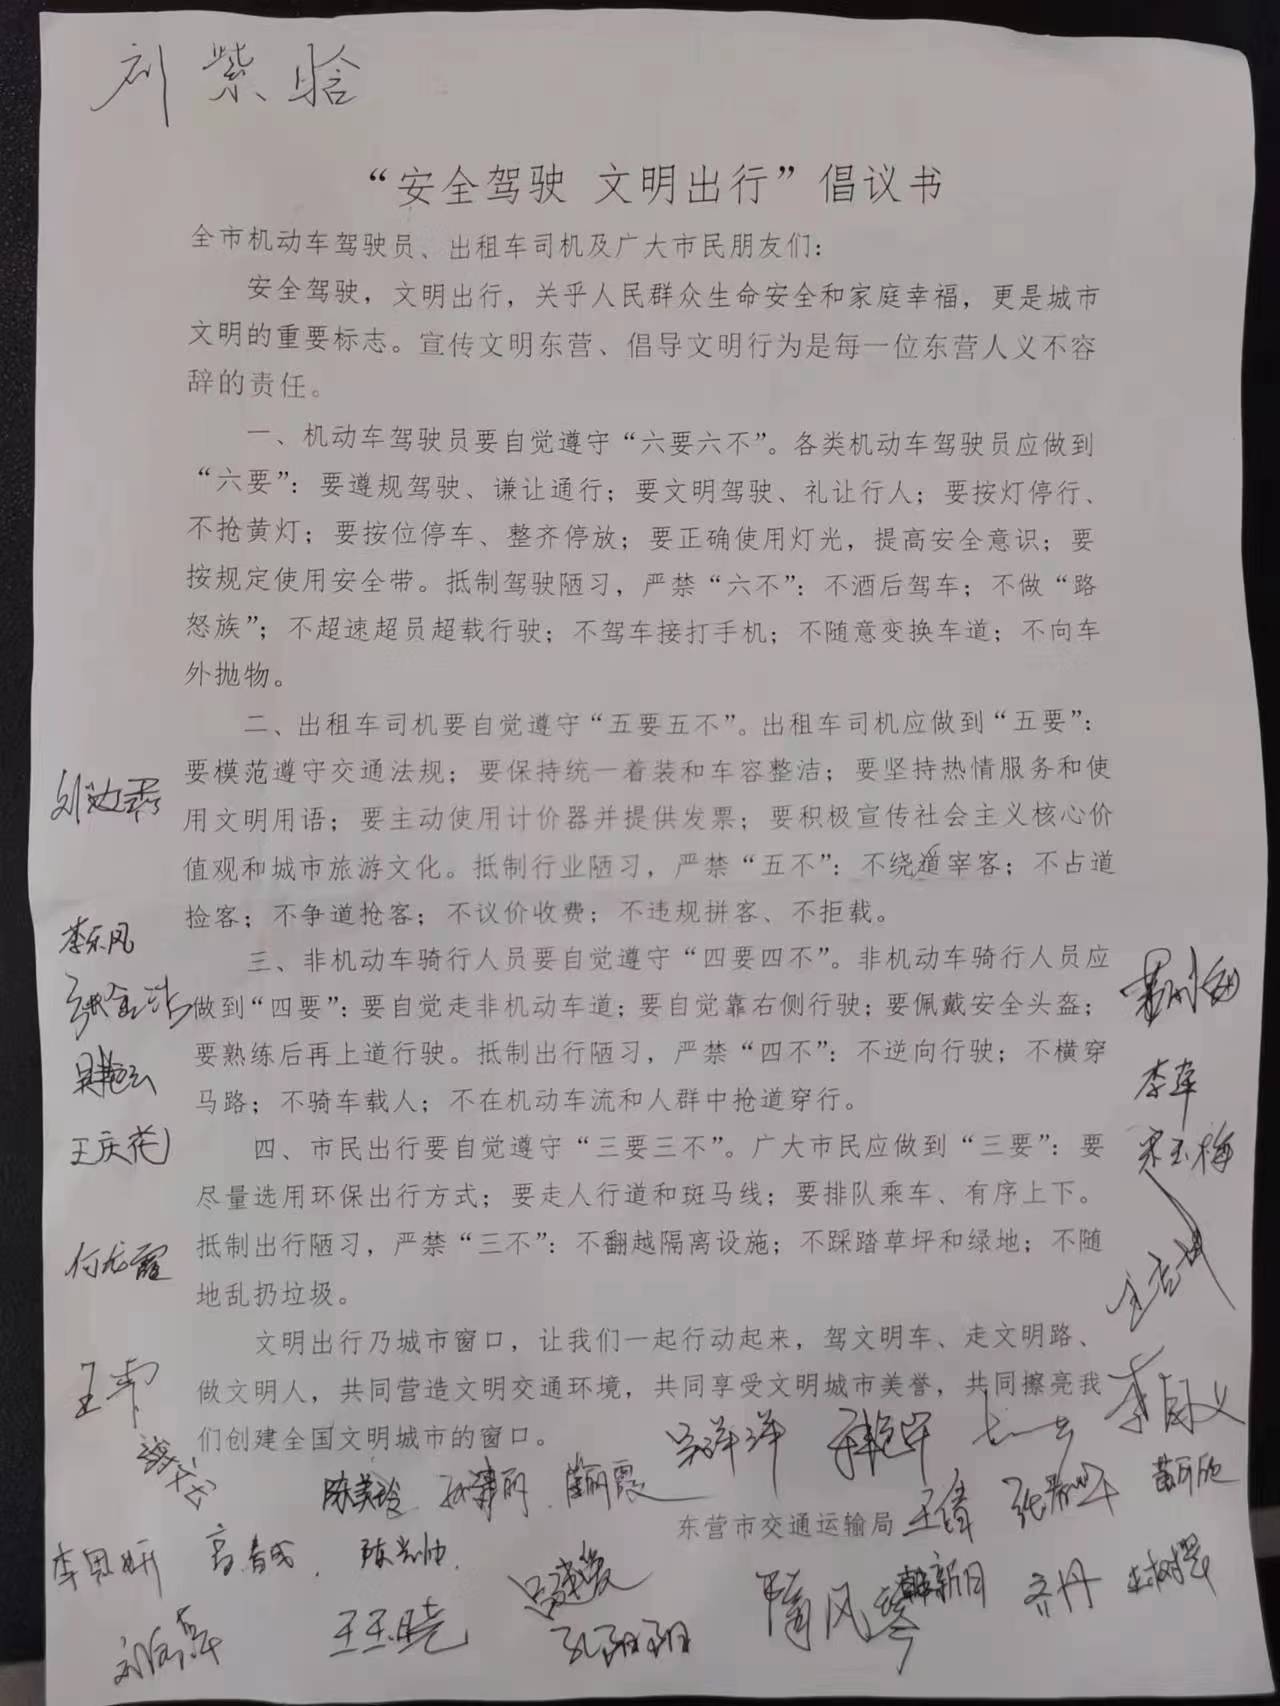 刘紫晗
“安全驾驶 文明出行”倡议书
全市机动车驾驶员、出租车司机及广大市民朋友们：
安全驾驶，文明出行，关乎人民群众生命安全和家庭幸福，更是城市
文明的重要标志。宣传文明东营、倡导文明行为是每一位东营人义不容
辞的责任。
一、机动车驾驶员要自觉遵守“六要六不”。各类机动车驾驶员应做到
“六要”：要遵规驾驶、谦让通行；要文明驾驶、礼让行人；要按灯停行、
不抢黄灯；要按位停车、整齐停放；要正确使用灯光，提高安全意识；要
按规定使用安全带。抵制驾驶陋习，严禁“六不”：不酒后驾车；不做“路
怒族”；不超速超员超载行驶；不驾车接打手机；不随意变换车道；不向车
外抛物。
二、出租车司机要自觉遵守“五要五不”。出租车司机应做到“五要”：
要模范遵守交通法规；要保持统一着装和车容整洁；要坚持热情服务和使
用文明用语；要主动使用计价器并提供发票；要积极宣传社会主义核心价
值观和城市旅游文化。抵制行业陋习，严禁“五不”：不绕道宰客；不占道
捡客；不争道抢客；不议价收费；不违规拼客、不拒载。
李东风
三、非机动车骑行人员要自觉遵守“四要四不”。非机动车骑行人员应
做到“四要”：要自觉走非机动车道；要自觉靠右侧行驶；要佩戴安全头盔；
要熟练后再上道行驶。抵制出行陋习，严禁“四不”：不逆向行驶；不横穿
马路；不骑车载人；不在机动车流和人群中抢道穿行。
李军
王庆花
宋玉梅
四、市民出行要自觉遵守“三要三不”。广大市民应做到“三要”：要
尽量选用环保出行方式；要走人行道和斑马线；要排队乘车、有序上下。
抵制出行陋习，严禁“三不”：不翻越隔离设施；不踩踏草坪和绿地；不随
地乱扔垃圾。
付龙霞
文明出行乃城市窗口，让我们一起行动起来，驾文明车、走文明路、
做文明人，共同营造文明交通环境，共同享受文明城市美誉，共同擦亮我
们创建全国文明城市的窗口。
吴洋洋
陈美玲
崔丽霞
东营市交通运输局
王伟
黄可欣
李思妍
高春成
韩新月
齐丹
王玉晓
隋风琴